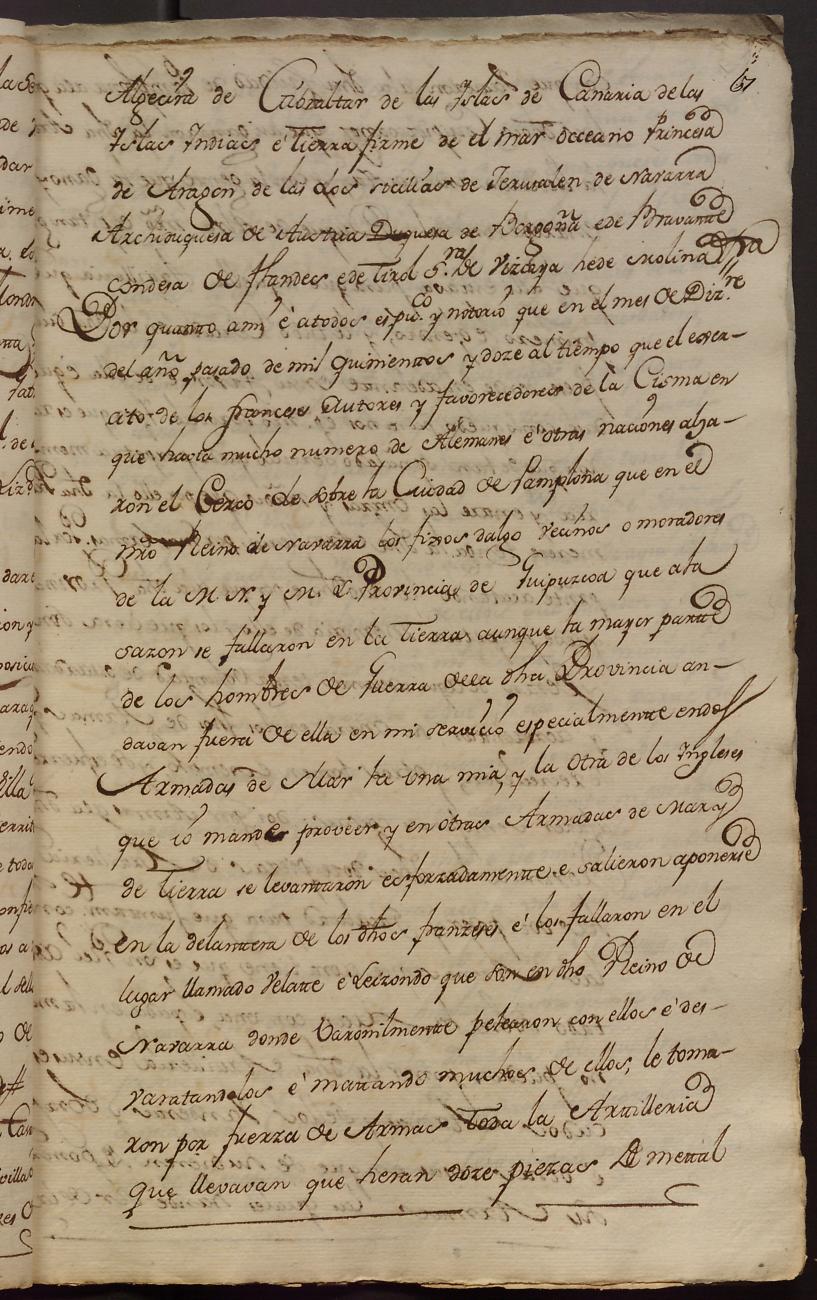 67
Algecira de Gibraltar de las Islas de Canaria de las
Islas Indias é tierra firme de el mar occeano Princesa
de Aragon de las dos sicilias de Jerusalen de Navarra
Archiduquesa de Austria Duquesa de Borgoña ede Bravante
condesa de flandes ede tirol s.ra de Vizcaya hede Molina &a
Por quanto ami é atodos es pu.co y notorio que en el mes de Diz.re
del año pasado de mil quinientos y doze al tiempo que el exer-
cito de los franceses Autores y favorecedores de la Cisma en
que havia mucho numero de Alemanes é otras naciones alza-
ron el Cerco de sobre la Ciudad de Pamplona que en el
mio Reino de Navarra los fixos dalgo vecinos o moradores
de la M. N. y M. L. Provincia de Guipuzcoa que ala
sazon se fallaron en la tierra aunque la mayor parte
de los hombres de Guerra de la dha Provincia an-
davan fuera de ella en mi servicio especialmente en dos
Armadas de Mar la una mia, y la otra de los Ingleses
que io mande proveer y en otras Armadas de Mar y
de tierra se levantaron esforzadamente e salieron aponerse
en la delantera de los dhos franzeses é los fallaron en el
lugar llamado Velate é Leizondo que son en dho Reino de
Navarra donde Varonilmente pelearon con ellos é des-
varatandolos é matando muchos de ellos, le toma-
ron por fuerza de Armas toda la Artilleria
que llevavan que heran doze piezas de metal